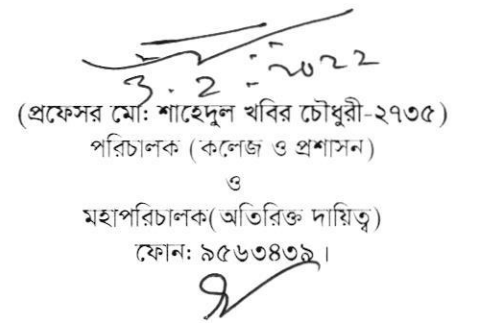 3.2.2022
(প্রফেসর মো: শাহেদুল খবির চৌধুরী-২৭৩৫)
পরিচালক (কলেজ ও প্রশাসন)
ও
মহাপরিচালক(অতিরিক্ত দায়িত্ব)
ফোন: ৯৫৬৩৪৩৯।